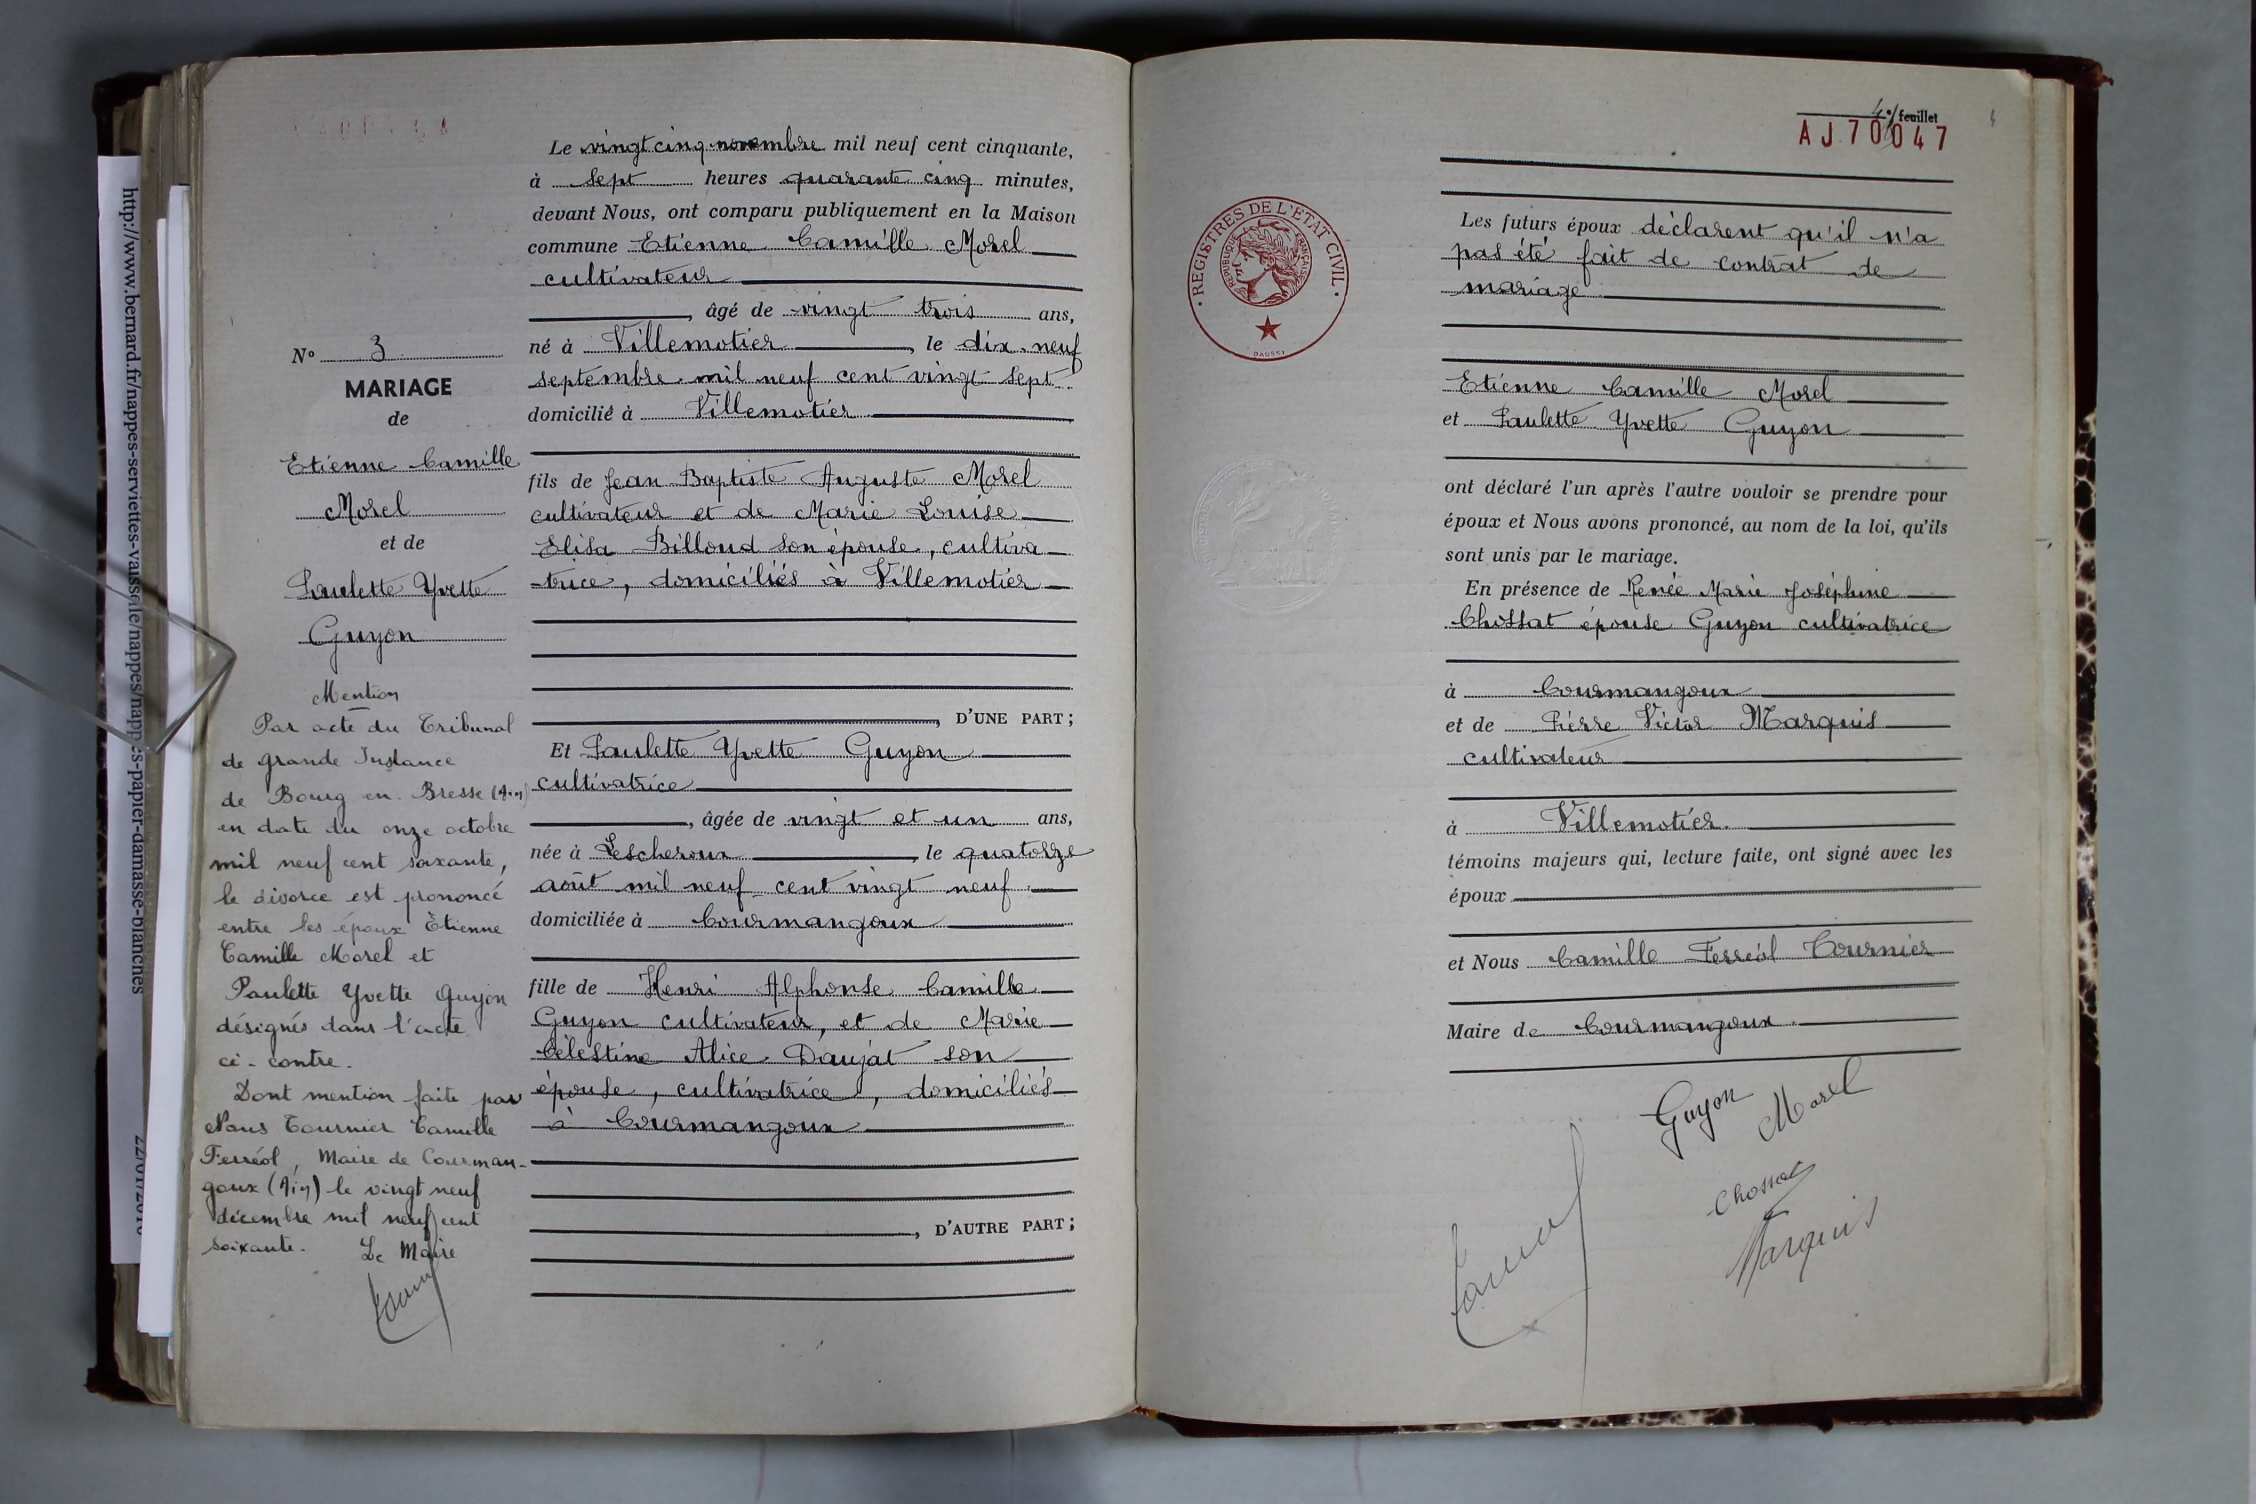 http://www.bernard.fr/nappes-serviettes-vaisselle/nappes/nappes-papier-damasse-blanches
N° 3
MARIAGE
de
Etienne Camille
Morel
et de
Paulette Yvette
Guyon
Mention
Par acte du Tribunal
de grande Instance
de Bourg en Bresse (Ain)
en date du onze octobre
mil neuf cent soixante,
le divorce est prononcé
entre les époux Etienne
Camille Morel et
Paulette Yvette Guyon
désignés dans l'acte
ci-contre.
Dont mention faite par
Nous Tournier Camille
Ferréol, Maire de Courman-
goux (Ain) le vingt neuf
décembre mil neuf cent
soixante. Le Maire
Le vingt cinq novembre mil neuf cent cinquante,
à sept heures quarante cinq minutes,
devant Nous, ont comparu publiquement en la Maison
commune Etienne Camille Morel
cultivateur
, âgé de vingt trois ans,
né à Villemotier, le dix-neuf
septembre mil neuf cent vingt sept
domicilié à Villemotier
fils de Jean Baptiste Auguste Morel
cultivateur et de Marie Louise
Elisa Billoud son épouse, cultiva-
trice, domiciliés à Villemotier
, D'UNE PART;
Et Paulette Yvette Guyon
cultivatrice
, âgée de vingt et un ans,
née à Lescheroux, le quatorze
août mil neuf cent vingt neuf
domiciliée à Courmangoux
fille de Henri Alphonse Camille
Guyon cultivateur, et de Marie
Célestine Alice Daujat son
épouse, cultivatrice, domiciliés
à Courmangoux
, D'AUTRE PART;
4e feuillet
AJ70047
REGISTRES DE L'ETAT CIVIL
REPUBLIQUE FRANÇAISE
Les futurs époux déclarent qu'il n'a
pas été fait de contrat de
mariage
Etienne Camille Morel
et Paulette Yvette Guyon
ont déclaré l'un après l'autre vouloir se prendre pour
époux et Nous avons prononcé, au nom de la loi, qu'ils
sont unis par le mariage.
En présence de Renée Marie Joséphine
Chossat épouse Guyon cultivatrice
à Courmangoux
et de Pierre Victor Marquis
cultivateur
à Villemotier.
témoins majeurs qui, lecture faite, ont signé avec les
époux
et Nous Camille Ferréol Tournier
Maire de Courmangoux.
Guyon
Morel
Chossat
Marquis